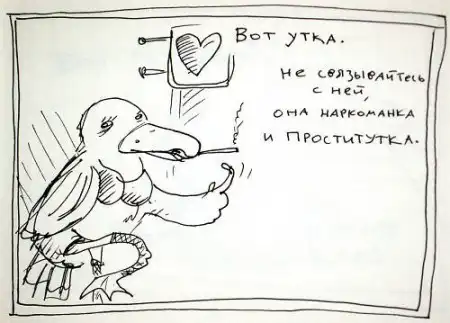 Вот утка.
Не связывайтесь
с ней,
она наркоманка
и проститутка.